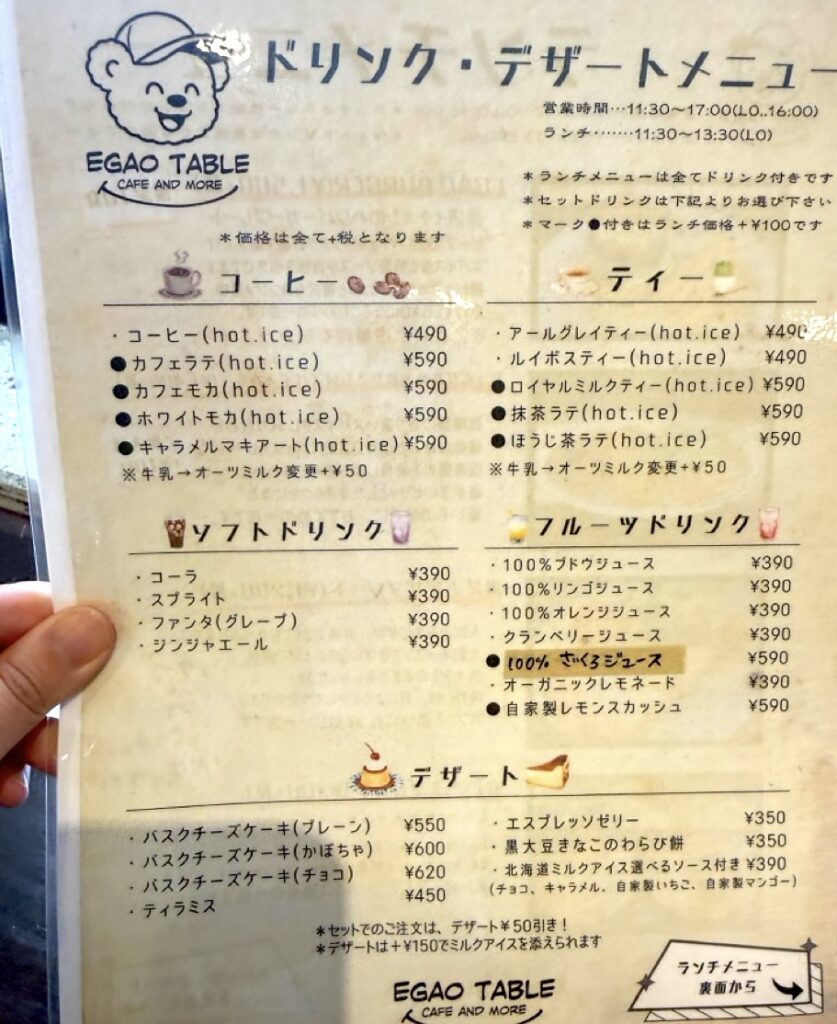 EGAO TABLE
CAFE AND MORE
ドリンク・デザートメニュー
営業時間…11:30〜17:00(LO..16:00)
ランチ‥‥‥11:30〜13:30(LO)
*ランチメニューは全てドリンク付きです
*セットドリンクは下記よりお選び下さい
*マーク●付きはランチ価格+¥100です
*価格は全て+税となります
コーヒー
・コーヒー(hot.ice) ¥490
●カフェラテ(hot.ice) ¥590
●カフェモカ(hot.ice) ¥590
●ホワイトモカ(hot.ice) ¥590
●キャラメルマキアート(hot.ice) ¥590
※牛乳→オーツミルク変更+¥50
ティー
・アールグレイティー(hot.ice) ¥490
・ルイボスティー(hot.ice) ¥490
●ロイヤルミルクティー(hot.ice) ¥590
●抹茶ラテ(hot.ice) ¥590
●ほうじ茶ラテ(hot.ice) ¥590
※牛乳→オーツミルク変更+¥50
ソフトドリンク
・コーラ ¥390
・スプライト ¥390
・ファンタ(グレープ) ¥390
・ジンジャエール ¥390
フルーツドリンク
・100%ブドウジュース ¥390
・100%リンゴジュース ¥390
・100%オレンジジュース ¥390
・クランベリージュース ¥390
●100% ざくろジュース ¥590
・オーガニックレモネード ¥390
●自家製レモンスカッシュ ¥590
デザート
・バスクチーズケーキ(プレーン) ¥550
・バスクチーズケーキ(かぼちゃ) ¥600
・バスクチーズケーキ(チョコ) ¥620
・ティラミス ¥450
・エスプレッソゼリー ¥350
・黒大豆きなこのわらび餅 ¥350
・北海道ミルクアイス選べるソース付き ¥390
(チョコ、キャラメル、自家製いちご、自家製マンゴー)
*セットでのご注文は、デザート¥50引き!
*デザートは+¥150でミルクアイスを添えられます
EGAO TABLE
CAFE AND MORE
ランチメニュー
裏面から